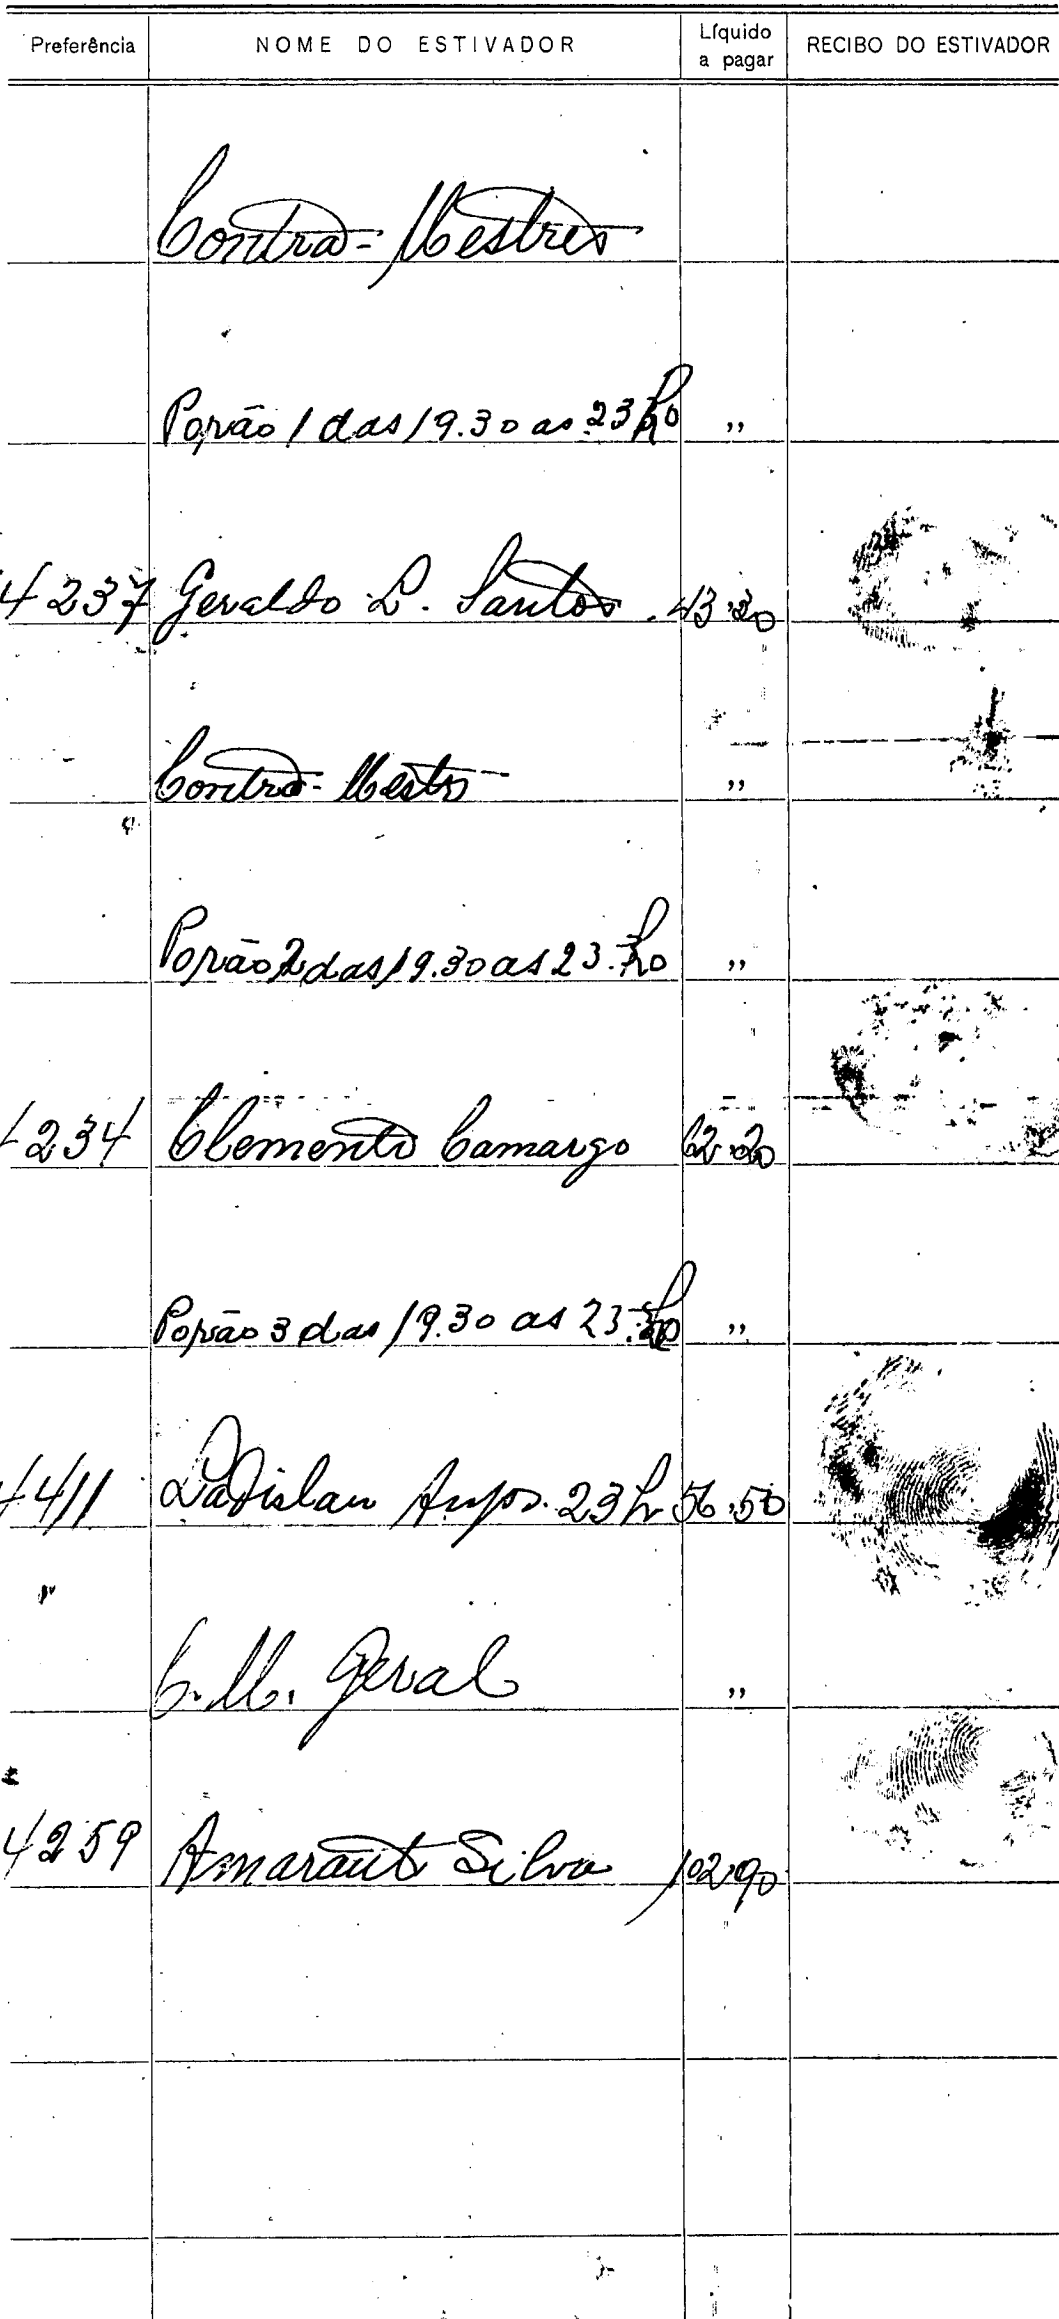 Preferência NOME DO ESTIVADOR Líquido a pagar RECIBO DO ESTIVADOR
Contra-Mestres
Porão 1 das 19.30 as 23 ho „
4237 Geraldo L. Santos 43.20
Contra-Mestre „
Porão 2 das 19.30 as 23. ho „
4234 Clemente Camargo 62.20
Porão 3 das 19.30 as 23. „
4411 Ladislau 23 h 56.50
C.M. Geral „
4259 Amarant Silva 102.90